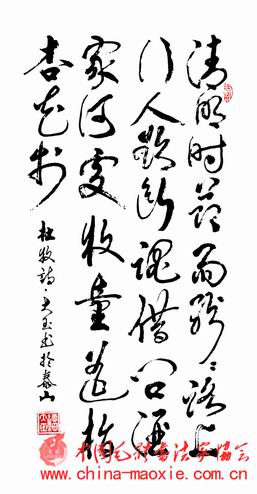 清明时节雨纷纷路上
行人欲断魂借问酒
家何处牧童遥指
杏花村
杜牧詩·玉书於泰山
中国毛体书法家协会
www.china-maoxie.com